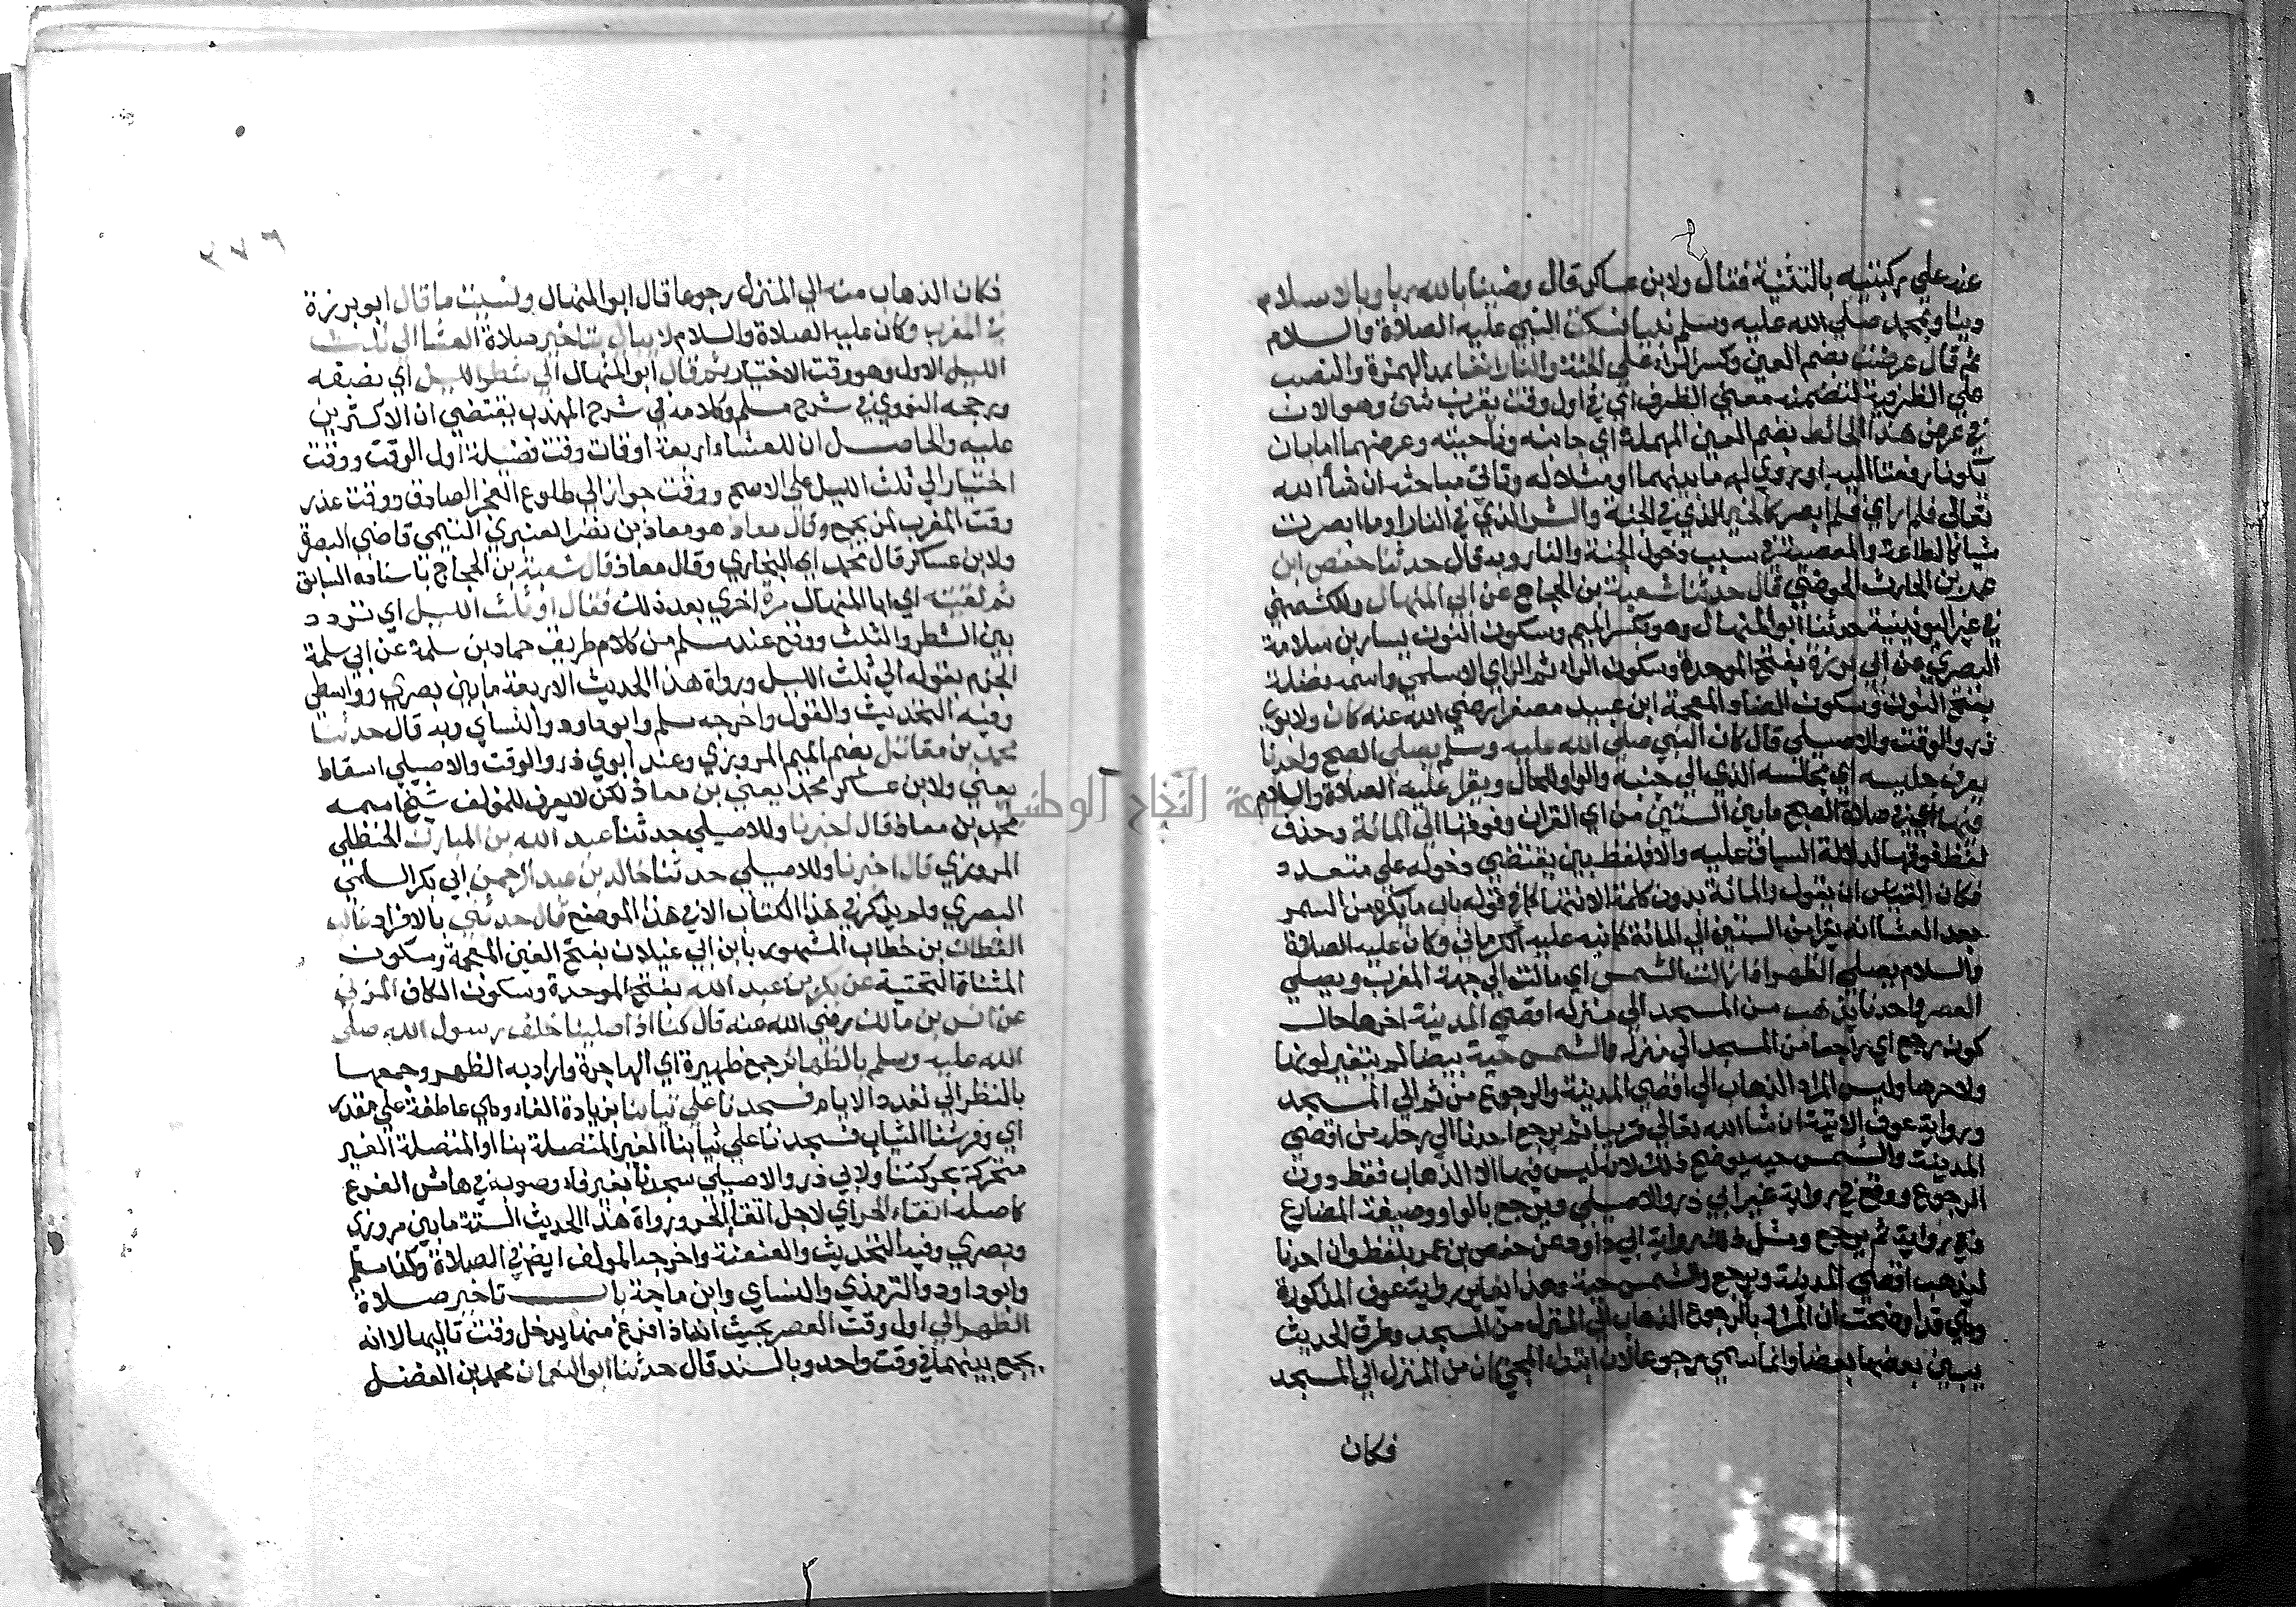 عند علي ركبتيه بالتثنية فقال ولابن عساكر قال رضينا بالله ربا وبالاسلام
دينا وبمحمد صلي الله عليه وسلم نبيا فسكت النبي عليه الصلاة والسلام
ثم قال عرضت بضم العين وكسر الراء علي الجنة والنار انفا بمد الهمزة والنصب
علي الظرفية لتضمنه معني الظرف اي في اول وقت يقرب شئ وهو الان
في عرض هذا الحائط بضم العين المهملة اي جانبه وناحيته وعرضهما اما بان
يكونا رفعتا اليه او زوي له ما بينهما او مثلا له وتاتي مباحثه ان شا الله
تعالي فلم ار اي فلم ابصر كالخير الذي في الجنة والشر الذي في النار او ما ابصرت
شيا كالطاعة والمعصية في سبب دخول الجنة والنار وبه قال حدثنا حفص ابن
عمر بن الحارث الحوضي قال حدثنا شعبة بن الحجاج عن ابي المنهال وللكشميهني
في غير اليونينية حدثنا ابو المنهال وهو بكسر الميم وسكون النون يسار بن سلامة
البصري عن ابي برزة بفتح الموحدة وسكون الراء ثم الزاي الاسلمي واسمه نضلة
بفتح النون وسكون الضاد المعجمة ابن عبيد مصغرا رضي الله عنه كان ولابوي
ذر والوقت والاصيلي قال كان النبي صلي الله عليه وسلم يصلي الصبح واحدنا
يعرف جليسه اي مجالسه الذي الي جنبه والواو للحال ويقرا عليه الصلاة والسلام
فيها اي في صلاة الصبح ما بين الستين من اي القران وفوقها الي المائة وحذف
لفظ فوقها لدلالة السياق عليه والا فلفظ بين يقتضي دخوله علي متعدد
فكان القياس ان يقول والمائة بدون كلمة الانتها كما في قوله باب ما يكره من السمر
بعد العشا انه يقرا من الستين الي المائة وكان عليه الصلاة
والسلام يصلي الظهر اذا زالت الشمس اي مالت الي جهة المغرب ويصلي
العصر واحدنا يذهب من المسجد الي منزله اقصي المدينة اخرها حال
كونه رجع اي راجعا من المسجد الي منزله والشمس حية بيضا لم يتغير لونها
ولا حرها وليس المراد الذهاب الي اقصي المدينة والرجوع من ثم الي المسجد
ورواية عوف الاتية ان شا الله تعالي قريبا ثم يرجع احدنا الي رحله من اقصي
المدينة والشمس حيه يوضح ذلك لانه ليس فيها الا الذهاب فقط دون
الرجوع ووقع في رواية غير ابي ذر والاصيلي ويرجع بالواو وصيغة المضارع
وفي رواية ثم يرجع ومثل هذه رواية ابي داود عن حفص بن عمر بلفظ وان احدنا
ليذهب اقصي المدينة ويرجع والشمس حية وهذا يغاير رواية عوف المذكورة
وهي قد اوضحت ان المراد بالرجوع الذهاب الي المنزل من المسجد وطرق الحديث
يبين بعضها بعضا وانما سمي رجوعا لان ابتدا المجي كان من المنزل الي المسجد
فكان
٣٧٢
فكان الذهاب منه الي المنزل رجوعا قال ابو المنهال ونسيت ما قال ابو برزة
في المغرب وكان عليه الصلاة والسلام لا يبالي بتاخير صلاة العشا الي ثلث
الليل الاول وهو وقت الاختيار ثم قال ابو المنهال الي شطر الليل اي نصفه
ورجحه النووي في شرح مسلم وكلامه في شرح المهذب يقتضي ان الاكثرين
عليه والحاصل ان للعشاء اربعة اوقات وقت فضيلة اول الوقت ووقت
اختيار الي ثلث الليل علي الاصح ووقت جواز الي طلوع الفجر الصادق ووقت عذر
وقت المغرب لمن يجمع وقال معاذ هو معاذ بن نصر العنبري التيمي قاضي البصرة
ولابن عساكر قال محمد اي البخاري وقال معاذ قال شعبة بن الحجاج باسناده السابق
ثم لقيته اي ابا المنهال مرة اخري بعد ذلك فقال او ثلث الليل اي تردد
بين الشطر والثلث ووقع عند مسلم من كلام طريف حماد بن سلمة عن ابي سلمة
الجزم بقوله الي ثلث الليل ورواة هذا الحديث الاربعة ما بين بصري وواسطي
وفيه التحديث والقول واخرجه مسلم وابو داود والنساي وبه قال حدثنا
محمد بن مقاتل بضم الميم المروزي وعند ابوي ذر والوقت والاصيلي اسقاط
يعني ولابن عساكر محمد يعني بن معاذ لكن لا يعرف للمؤلف شيخ اسمه
محمد بن معاذ قال اخبرنا وللاصيلي حدثنا عبد الله بن المبارك الحنظلي
المروزي قال اخبرنا وللاصيلي حدثنا خالد بن عبد الرحمن ابي بكر السلمي
البصري ولم يذكر في هذا الكتاب الا في هذا الموضع قال حدثني بالافراد غالب
القطان بن خطاب المشهور بابن ابي غيلان بفتح الغين المعجمة وسكون
المثناة التحتية عن بكر بن عبد الله بفتح الموحدة وسكون الكاف المزني
عن انس بن مالك رضي الله عنه قال كنا اذا صلينا خلف رسول الله صلي
الله عليه وسلم بالظهائر جمع ظهيرة اي الهاجرة واراد به الظهر وجمعها
بالنظر الي تعدد الايام فسجدنا علي ثيابنا بزيادة الفاء وهي عاطفة علي مقدر
اي وفرشنا الثياب فسجدنا علي ثيابنا الغير المتصلة بنا او المتصلة الغير
متحركة بحركتنا ولابي ذر والاصيلي سجدنا بغير فاء وصوبه في هامش الفرع
كاصله اتقاء الحر اي لاجل اتقا الحر ورواة هذا الحديث الستة ما بين مروزي
وبصري وفيه التحديث والعنعنة واخرجه المولف ايضا في الصلاة وكذا مسلم
وابو داود والترمذي والنساي وابن ماجة باب تاخير صلاة
الظهر الي اول وقت العصر بحيث انه اذا فرغ منها يدخل وقت تاليها لا انه
يجمع بينهما في وقت واحد وبالسند قال حدثنا ابو النعمان محمد بن الفضل
جامعة النجاح الوطنية